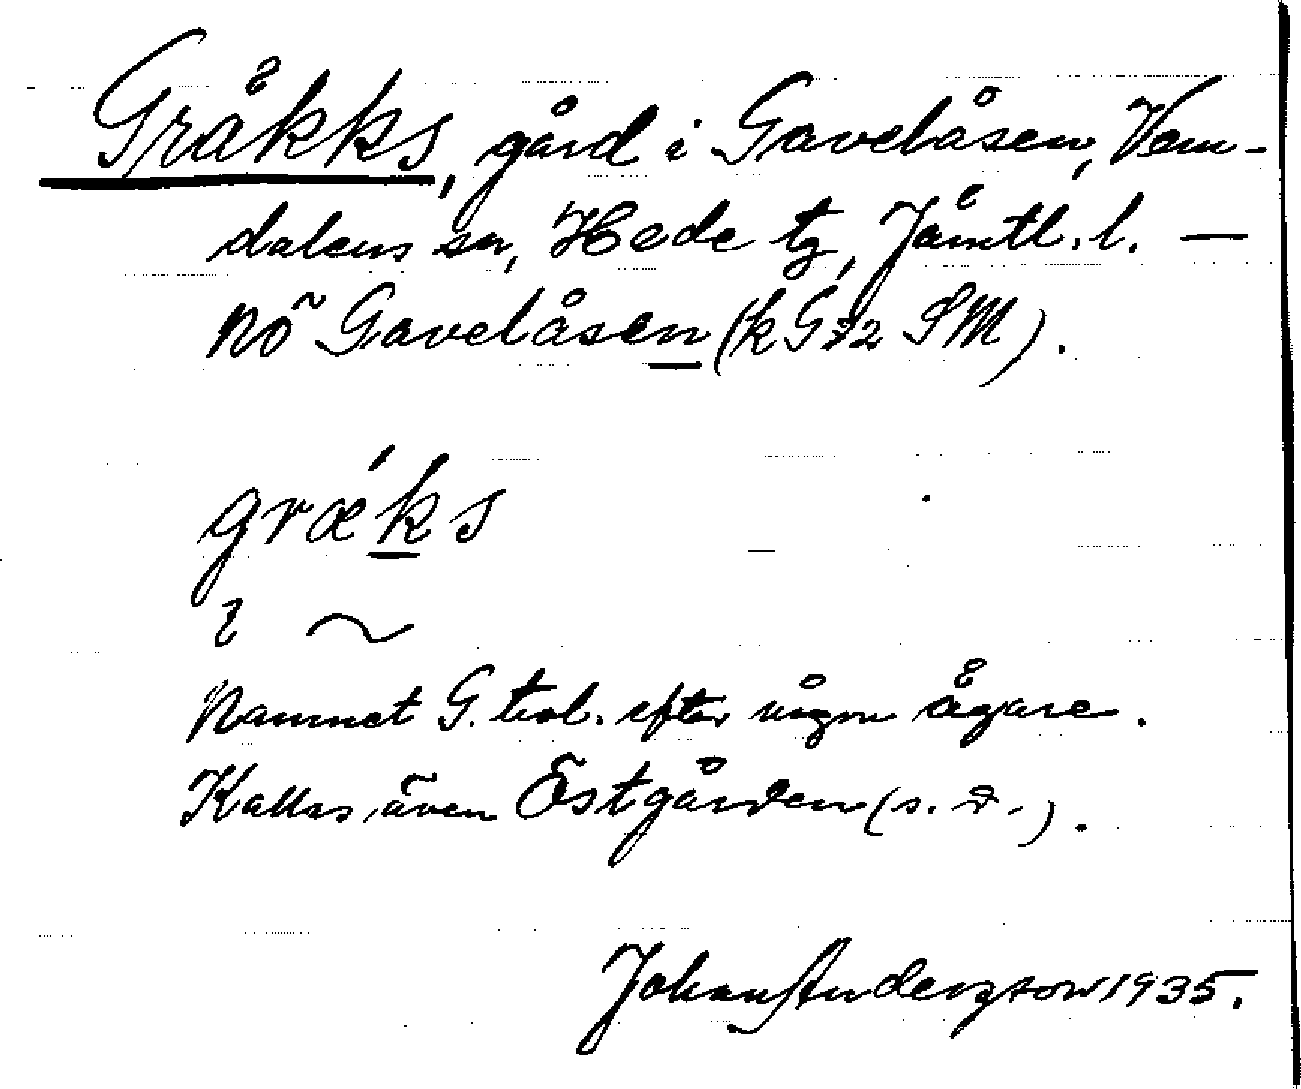 Gråkks, gård i Gavelåsen, Vem-
dalens sn, Hede tg, Jämtl. l. —
nö Gavelåsen (k G32 SM).
græ´ks
i ~
Namnet G. trol. efter någon ägare.
Kallas även Östgården (s. d.).
Johan Andersson 1935.